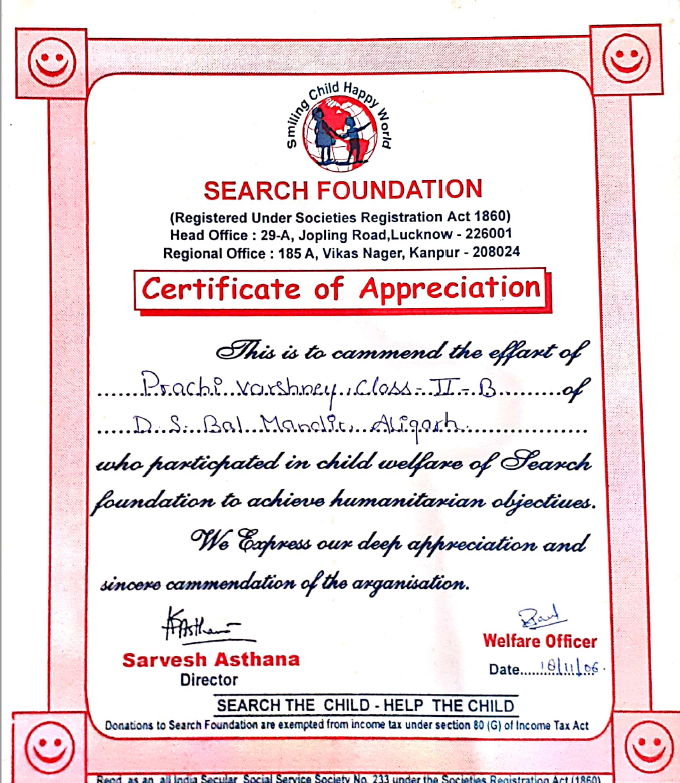 Smiling Child Happy World
SEARCH FOUNDATION
(Registered Under Societies Registration Act 1860)
Head Office : 29-A, Jopling Road,Lucknow - 226001
Regional Office : 185 A, Vikas Nager, Kanpur - 208024
Certificate of Appreciation
This is to cammend the effart of
Prachi Varshney, Class-II-B of
D.S. Bal Mandir, Aligarh
who particpated in child welfare of Search
foundation to achieve humanitarian objectiues.
We Express our deep appreciation and
sincere cammendation of the arganisation.
Sarvesh Asthana
Director
Welfare Officer
Date 18/11/06.
SEARCH THE CHILD - HELP THE CHILD
Donations to Search Foundation are exempted from income tax under section 80 (G) of Income Tax Act
Regd. as an all India Secular Social Service Society No. 233 under the Societies Registration Act (1860)